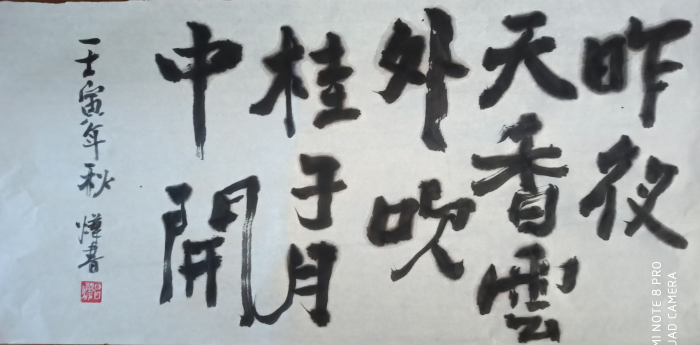 昨夜
天香雲
外吹
桂子月
中開
壬寅年秋 煒書
MI NOTE 8 PRO
UAD CAMERA